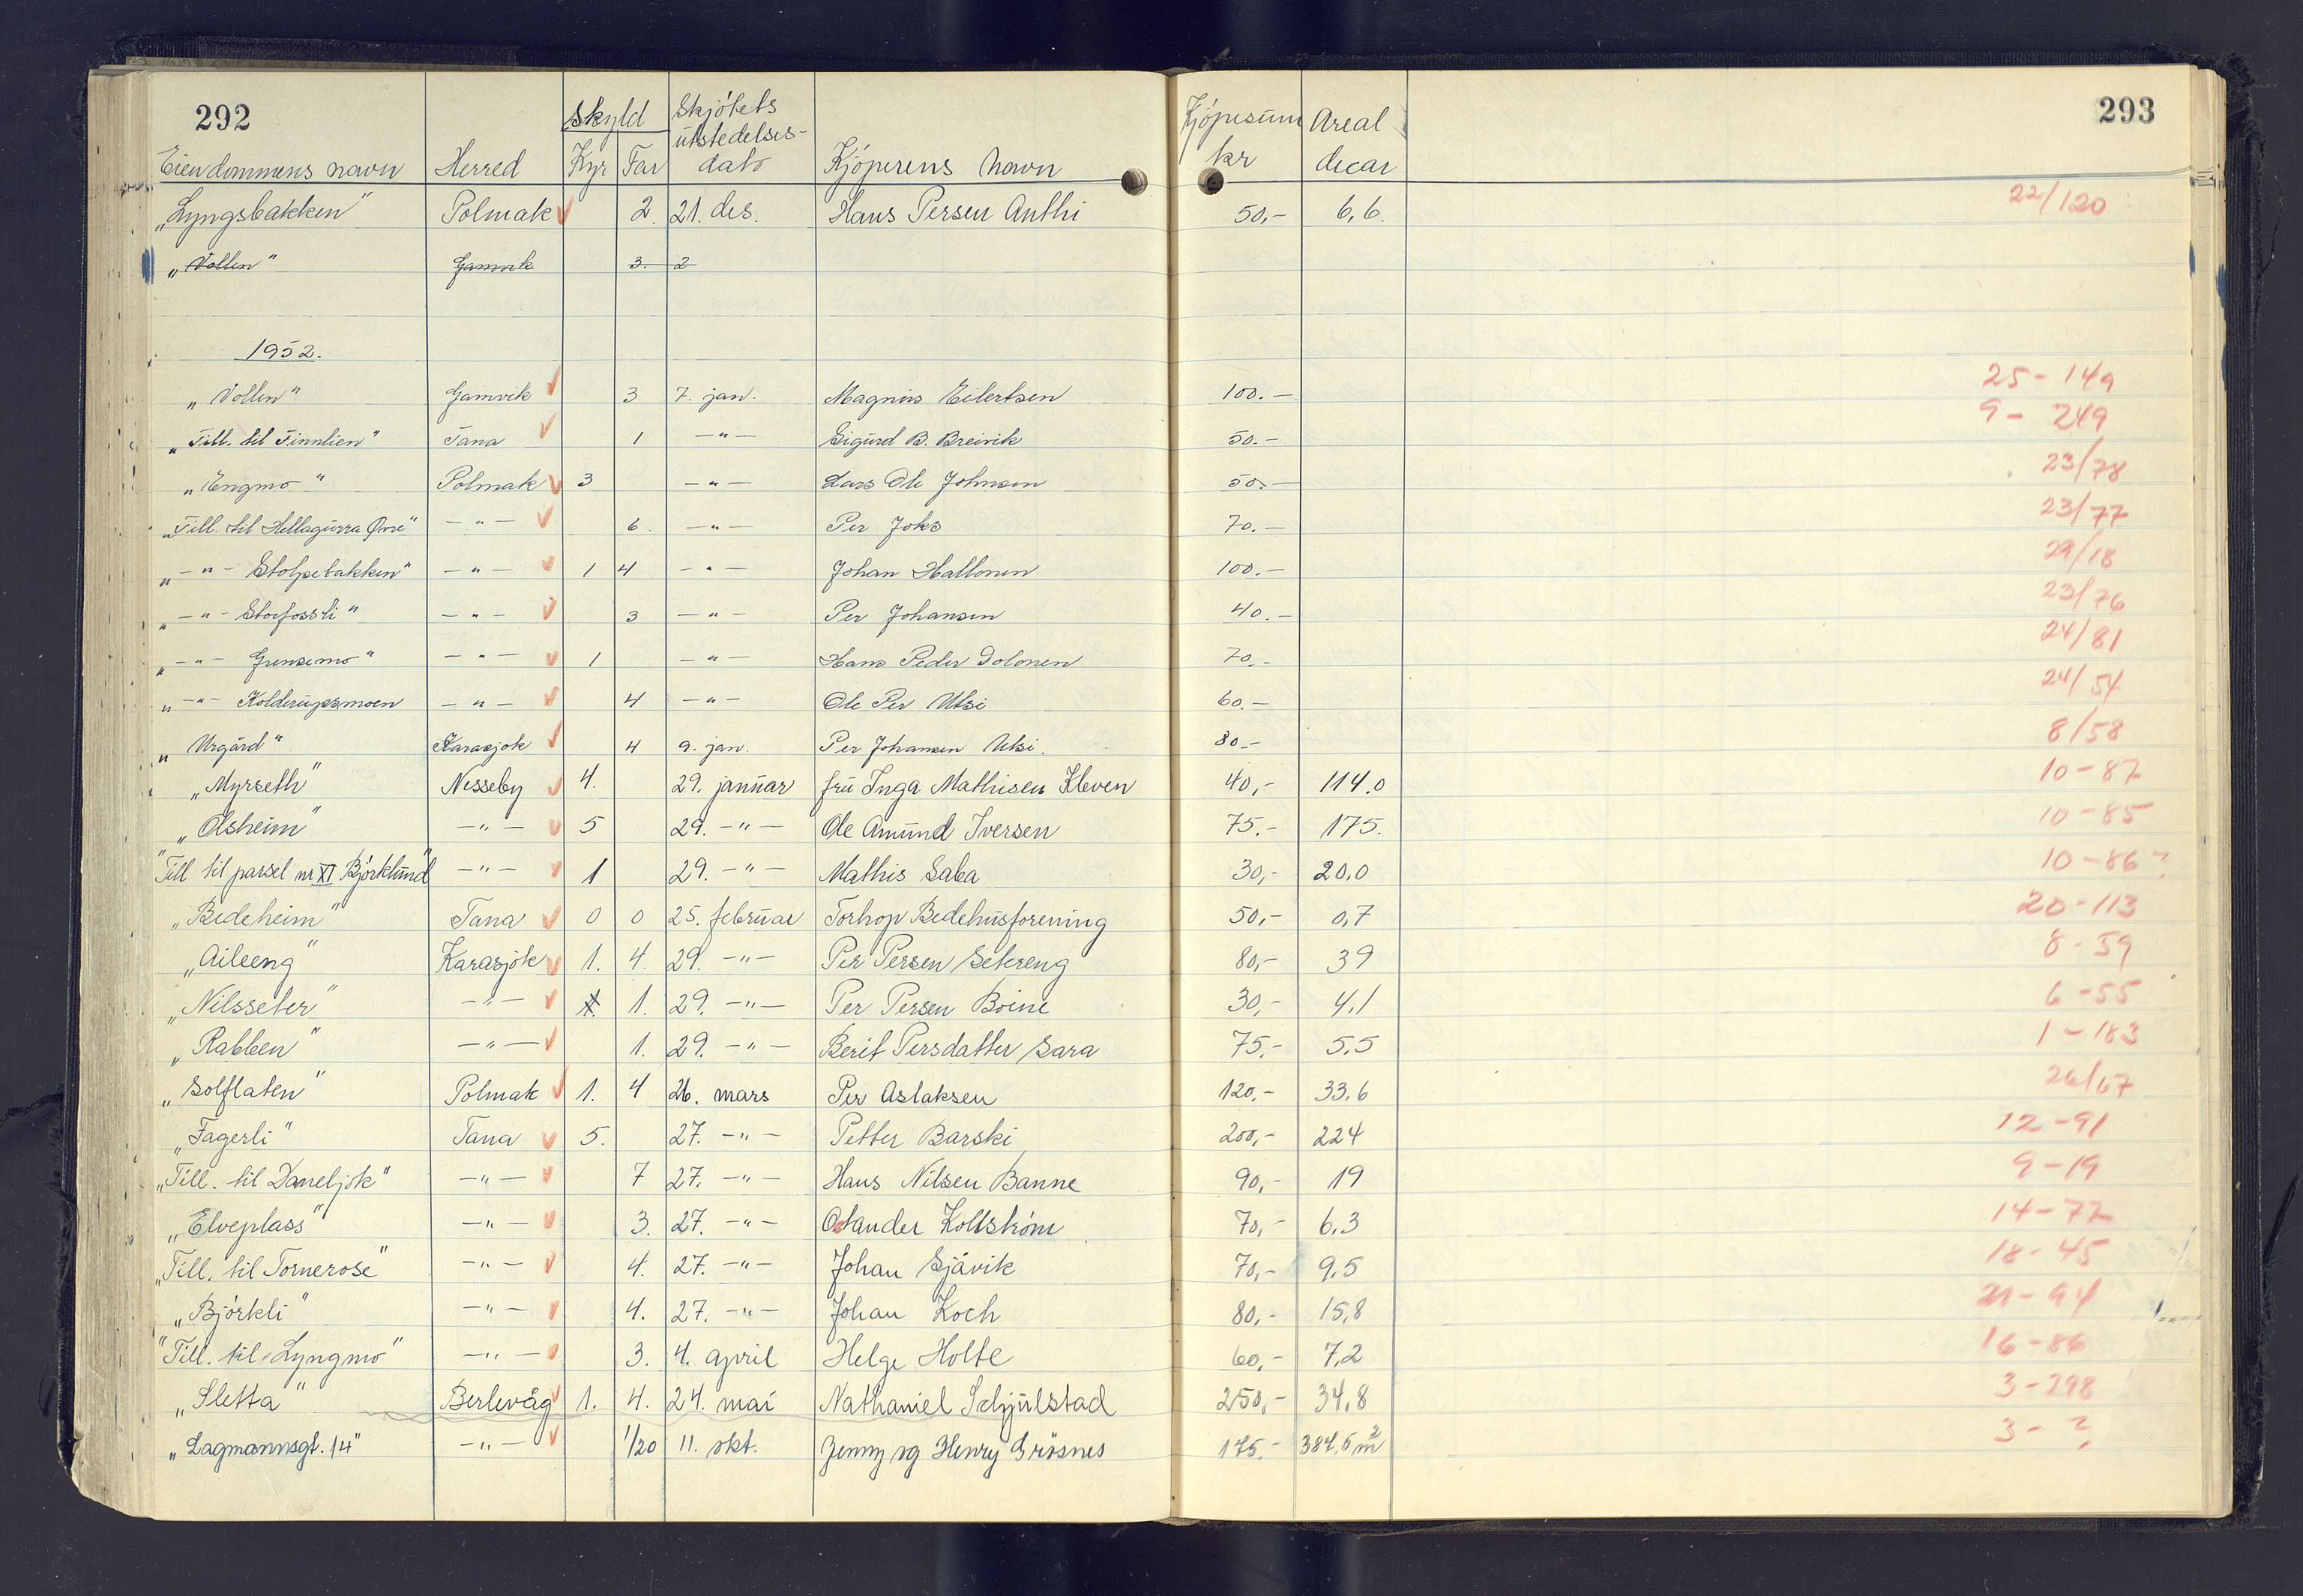 292
293
Eiendommens navn Herred Skyld Kyr Far Skjötets ütstedelses- dato Kjöperens navn Kjöpesüm kr Areal decar
„Lyngsbakken" Polmak 2. 21. des. Hans Persen Anthi 50,- 6,6. 22/120
„Vollen" Gamvik 3. 2
1952.
„Vollen" Gamvik 3 7. jan. Magnus Eilertsen 100.- 25-149
„Till. til Finnlien" Tana 1 -"- Sigurd B. Breivik 50.- 9-249
„Engmo" Polmak 3 -"- Lars Ole Johnsen 50.- 23/78
„Till. til Hellagurra Øvre" -"- 6. -"- Per Joks 70.- 23/77
„-"- Stolpebakken" -"- 1 4 -"- Johan Hallonen 100.- 29/18
„-"- Storfossli" -"- 3 -"- Per Johansen 40.- 23/76
„-"- Grensemo" -"- 1 -"- Hans Peder Dolonen 70.- 24/81
„-"- Kolderupsmoen -"- 4 -"- Ole Per Utsi 60.- 24/54
„Urgård" Karasjok 4 9. jan. Per Johansen Utsi. 80.- 8/58
„Myrseth" Nesseby 4. 29. januar fru Inga Mathisen Kleven 40,- 114.0 10-87
„Olsheim" -"- 5 29. -"- Ole Amund Iversen 75.- 175. 10-85
"Till til parsel nr XI Björklund" -"- 1 29. -"- Mathis Saba 30,- 20.0 10-86?
„Bedeheim" Tana 0 0 25. februar Torhop Bedehusforening 50,- 0,7 20-113
„Aileeng" Karasjok 1. 4. 29. -"- Per Persen Setereng 80,- 39 8-59
„Nilsseter" -"- 1. 29. -"- Per Persen Boine 30,- 4,1 6-55
„Rabben" -"- 1. 29. -"- Berit Persdatter Sara 75.- 5.5 1-183
„Solflaten" Polmak 1. 4 26. mars Per Aslaksen 120.- 33.6 26/67
„Fagerli" Tana 5. 27. -"- Petter Barski 200,- 224 12-91
„Till. til Daneljok" -"- 7 27. -"- Hans Nilsen Banne 90,- 19 9-19
„Elveplass" -"- 3. 27. -"- Kollström 70,- 6.3 14-72
„Till. til Tornerose" -"- 4. 27. -"- Johan Sjåvik 70,- 9.5 18-45
„Björkli" -"- 4. 27. -"- Johan Koch 80,- 15,8 21-94
"Till. til Lyngmo" -"- 3. 4. april Helge Holte 60,- 7,2 16-86
„Sletta" Berlevåg 1. 4. 24. mai Nathaniel Schjülstad 250,- 34,8 3-298
„Lagmannsgt. 14" -"- 1/20 11. okt. Jenny og Henry Grösnes 175.- 387,5 m² 3-?